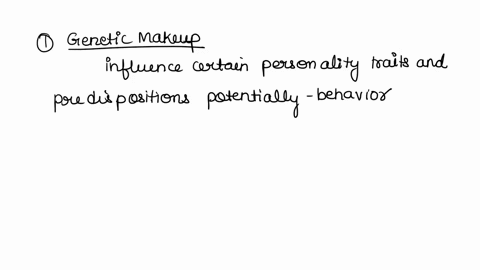 ① Genetic Makeup
influence certain personality traits and
predispositions potentially - behavior